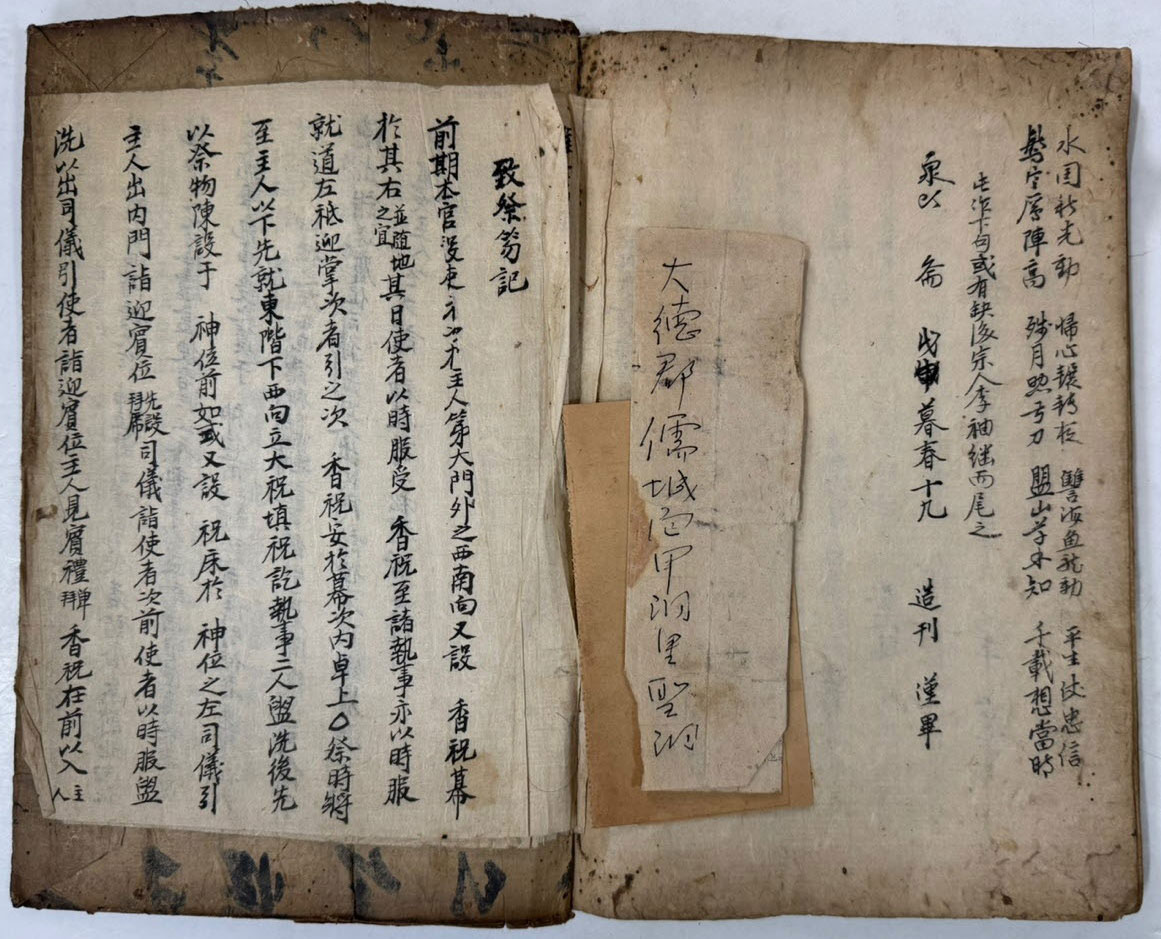 水国秋光動 歸心輾轉夜 讐海魚龍動 平生仗忠信
驚寒鴈陣高 殘月照弓刀 盟山草木知 千載想當時
此作下句或有缺後宗人李 繼而尾之
戊申 暮春十九 造刊 謹畢
大德郡儒城面甲洞里聖洞
致祭笏記
前期本官設 主人第大門外之西南向又設 香祝幕
於其右並隨地之宜其日使者以時服受 香祝至諸執事亦以時服
就道左祗迎掌次者引之次 香祝安於幕次內卓上○祭時將
至主人以下先就東階下西向立大祝填祝訖執事二人盥洗後先
以祭物陳設于 神位前如或又設 祝床於 神位之左司儀引
主人出內門詣迎賓位先設拜席司儀詣使者次前使者以時服盥
洗以出司儀引使者詣迎賓位主人見賓禮單拜香祝在前以入主人